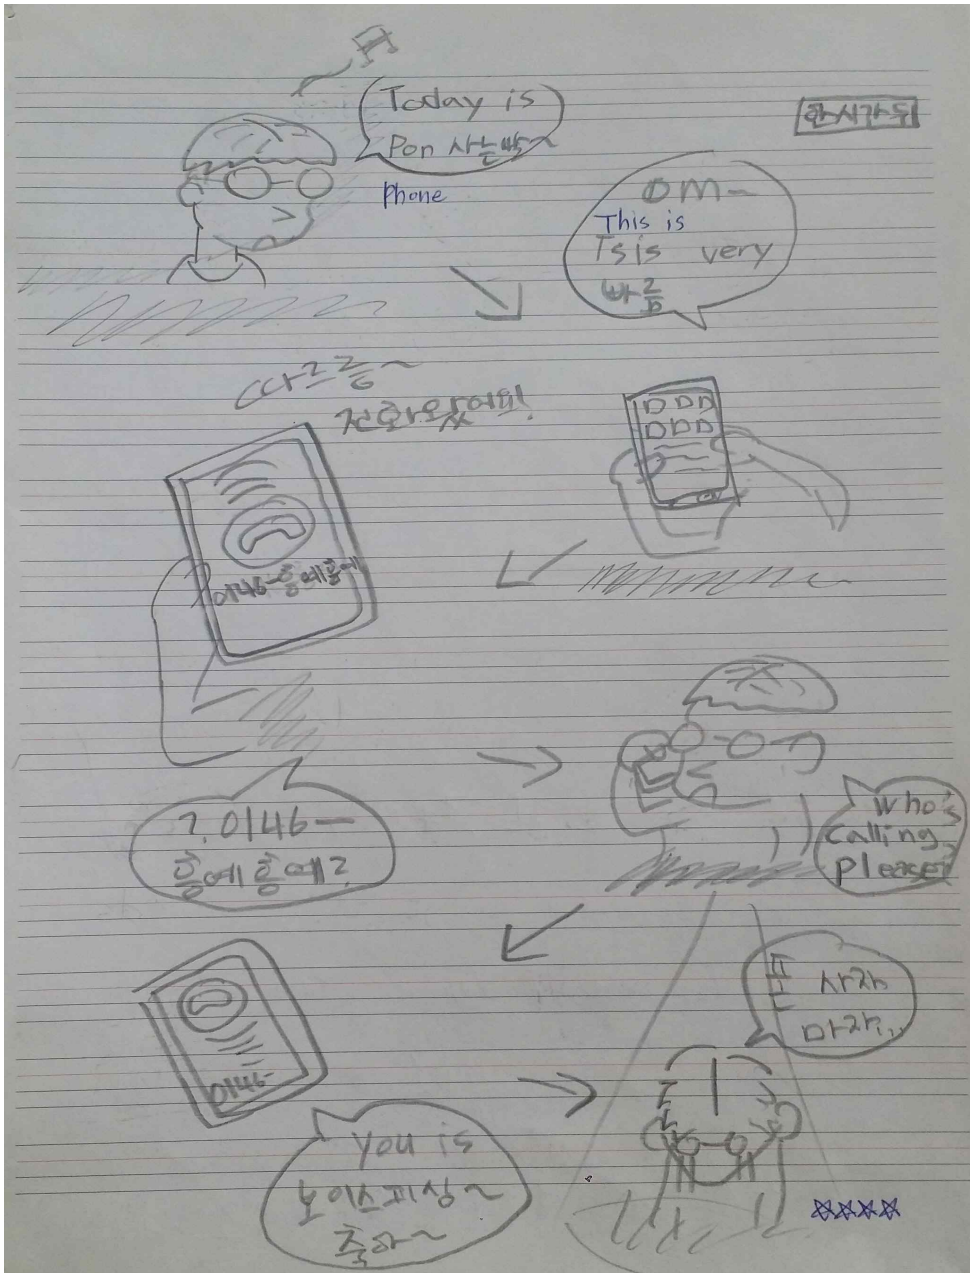 Today is
Pon 사는 빡~
Phone
한시간 뒤
OM~
This is
Tsis very
빠름
따르릉~
전화왔어요!
0146-흥에흥에
?, 0146-
흥에흥에?
Who's
calling
please?
0146-
you is
보이스피싱~
축하~
폰
사자
마자..